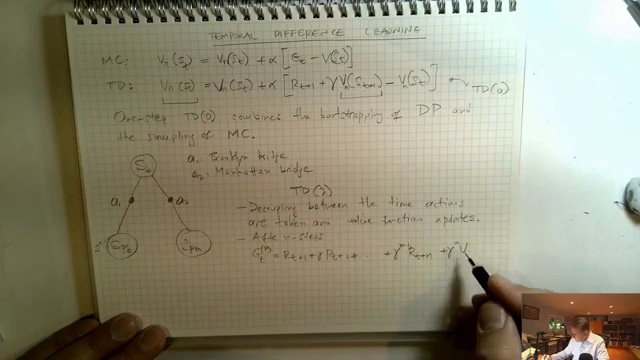 TEMPORAL DIFFERENCE LEARNING
MC: Vπ(St) = Vπ(St) + α [Gt - V(St)]
TD: Vπ(St) = Vπ(St) + α [Rt+1 + γVπ(St+1) - Vπ(St)] TD(0)
One-step TD(0) combines the bootstrapping of DP and
the sampling of MC.
S0
a1: Brooklyn bridge
a2: Manhattan bridge
a1 a2
TD(λ)
- Decoupling between the time actions
are taken and value function updates.
- After n-steps
s'
Gt(n) = Rt+1 + γRt+2 + ... + γn-1 Rt+n + γn V